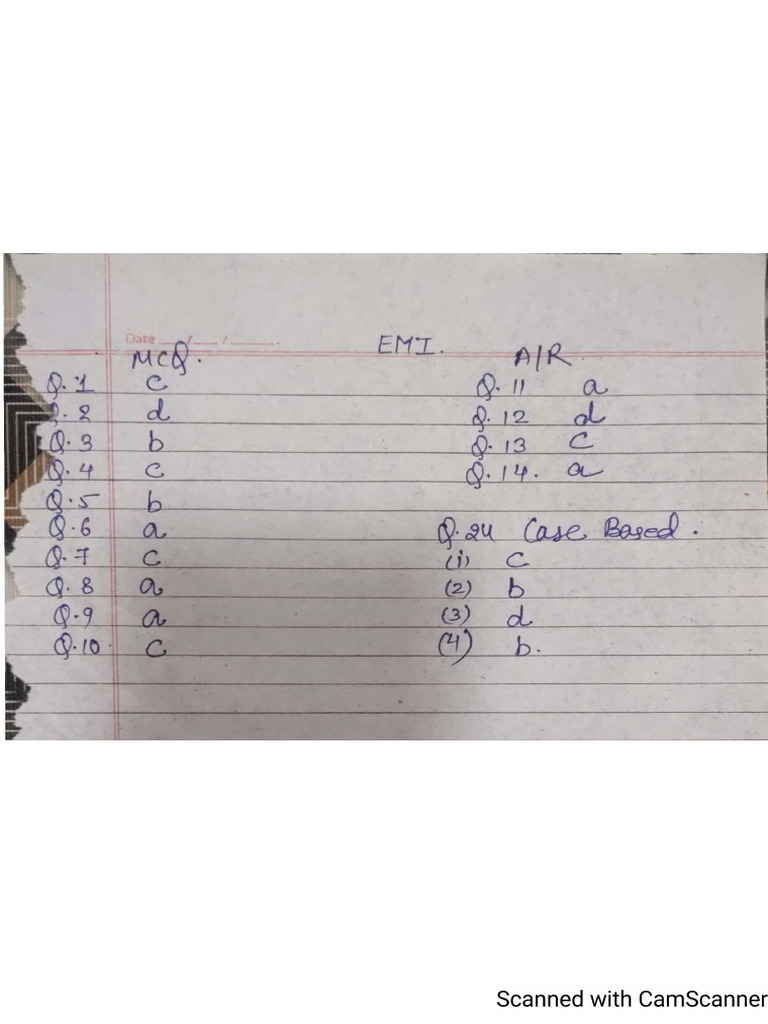 Date __/__/____.
EMI.
MCQ.
Q.1 c
Q.2 d
Q.3 b
Q.4 c
Q.5 b
Q.6 a
Q.7 c
Q.8 a
Q.9 a
Q.10. c
A/R
Q.11 a
Q.12 d
Q.13 c
Q.14. a
Q.24 Case Based.
(1) c
(2) b
(3) d
(4) b.
Scanned with CamScanner